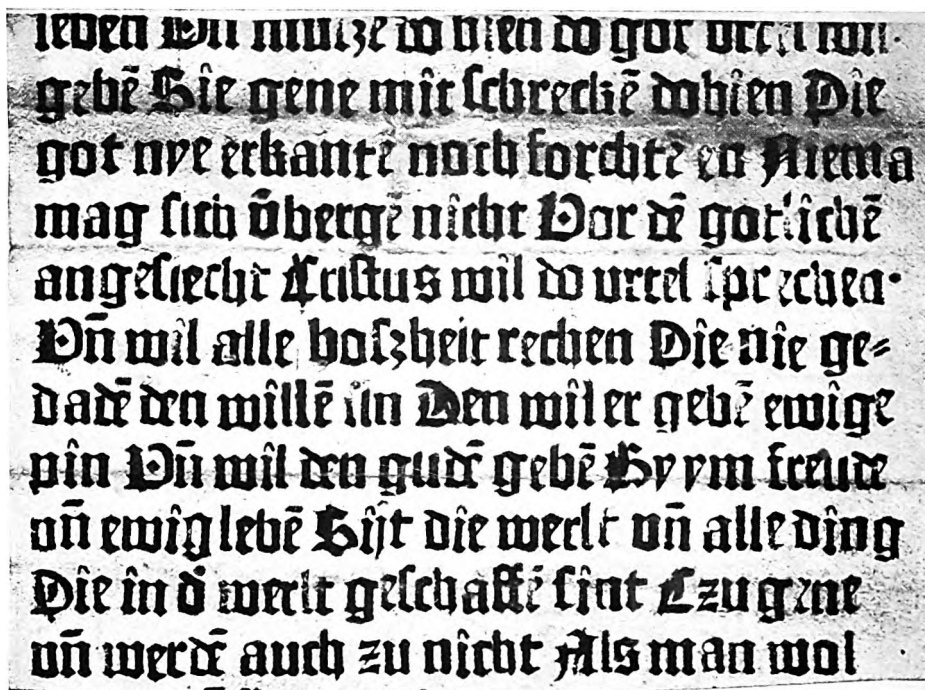 leben Vñ musze do hien do got vrteil wil·
gebē Sie gene mit schreckē dohien Die
got nye erkantē noch forchtē en Niema
mag sich v̄bergē nicht Vor dē gotlichē
angesiecht Cristus wil do vrtel sprechen·
Vñ wil alle boszheit rechen Die nie ge⸗
dadē den willē sin Den wil er gebē ewige
pin Vñ wil den gudē gebē By ym freude
vñ ewig lebē Sijt die werlt vñ alle ding
Die in d̄ werlt geschaffē sint Czu gene
vñ werdē auch zu nicht Als man wol